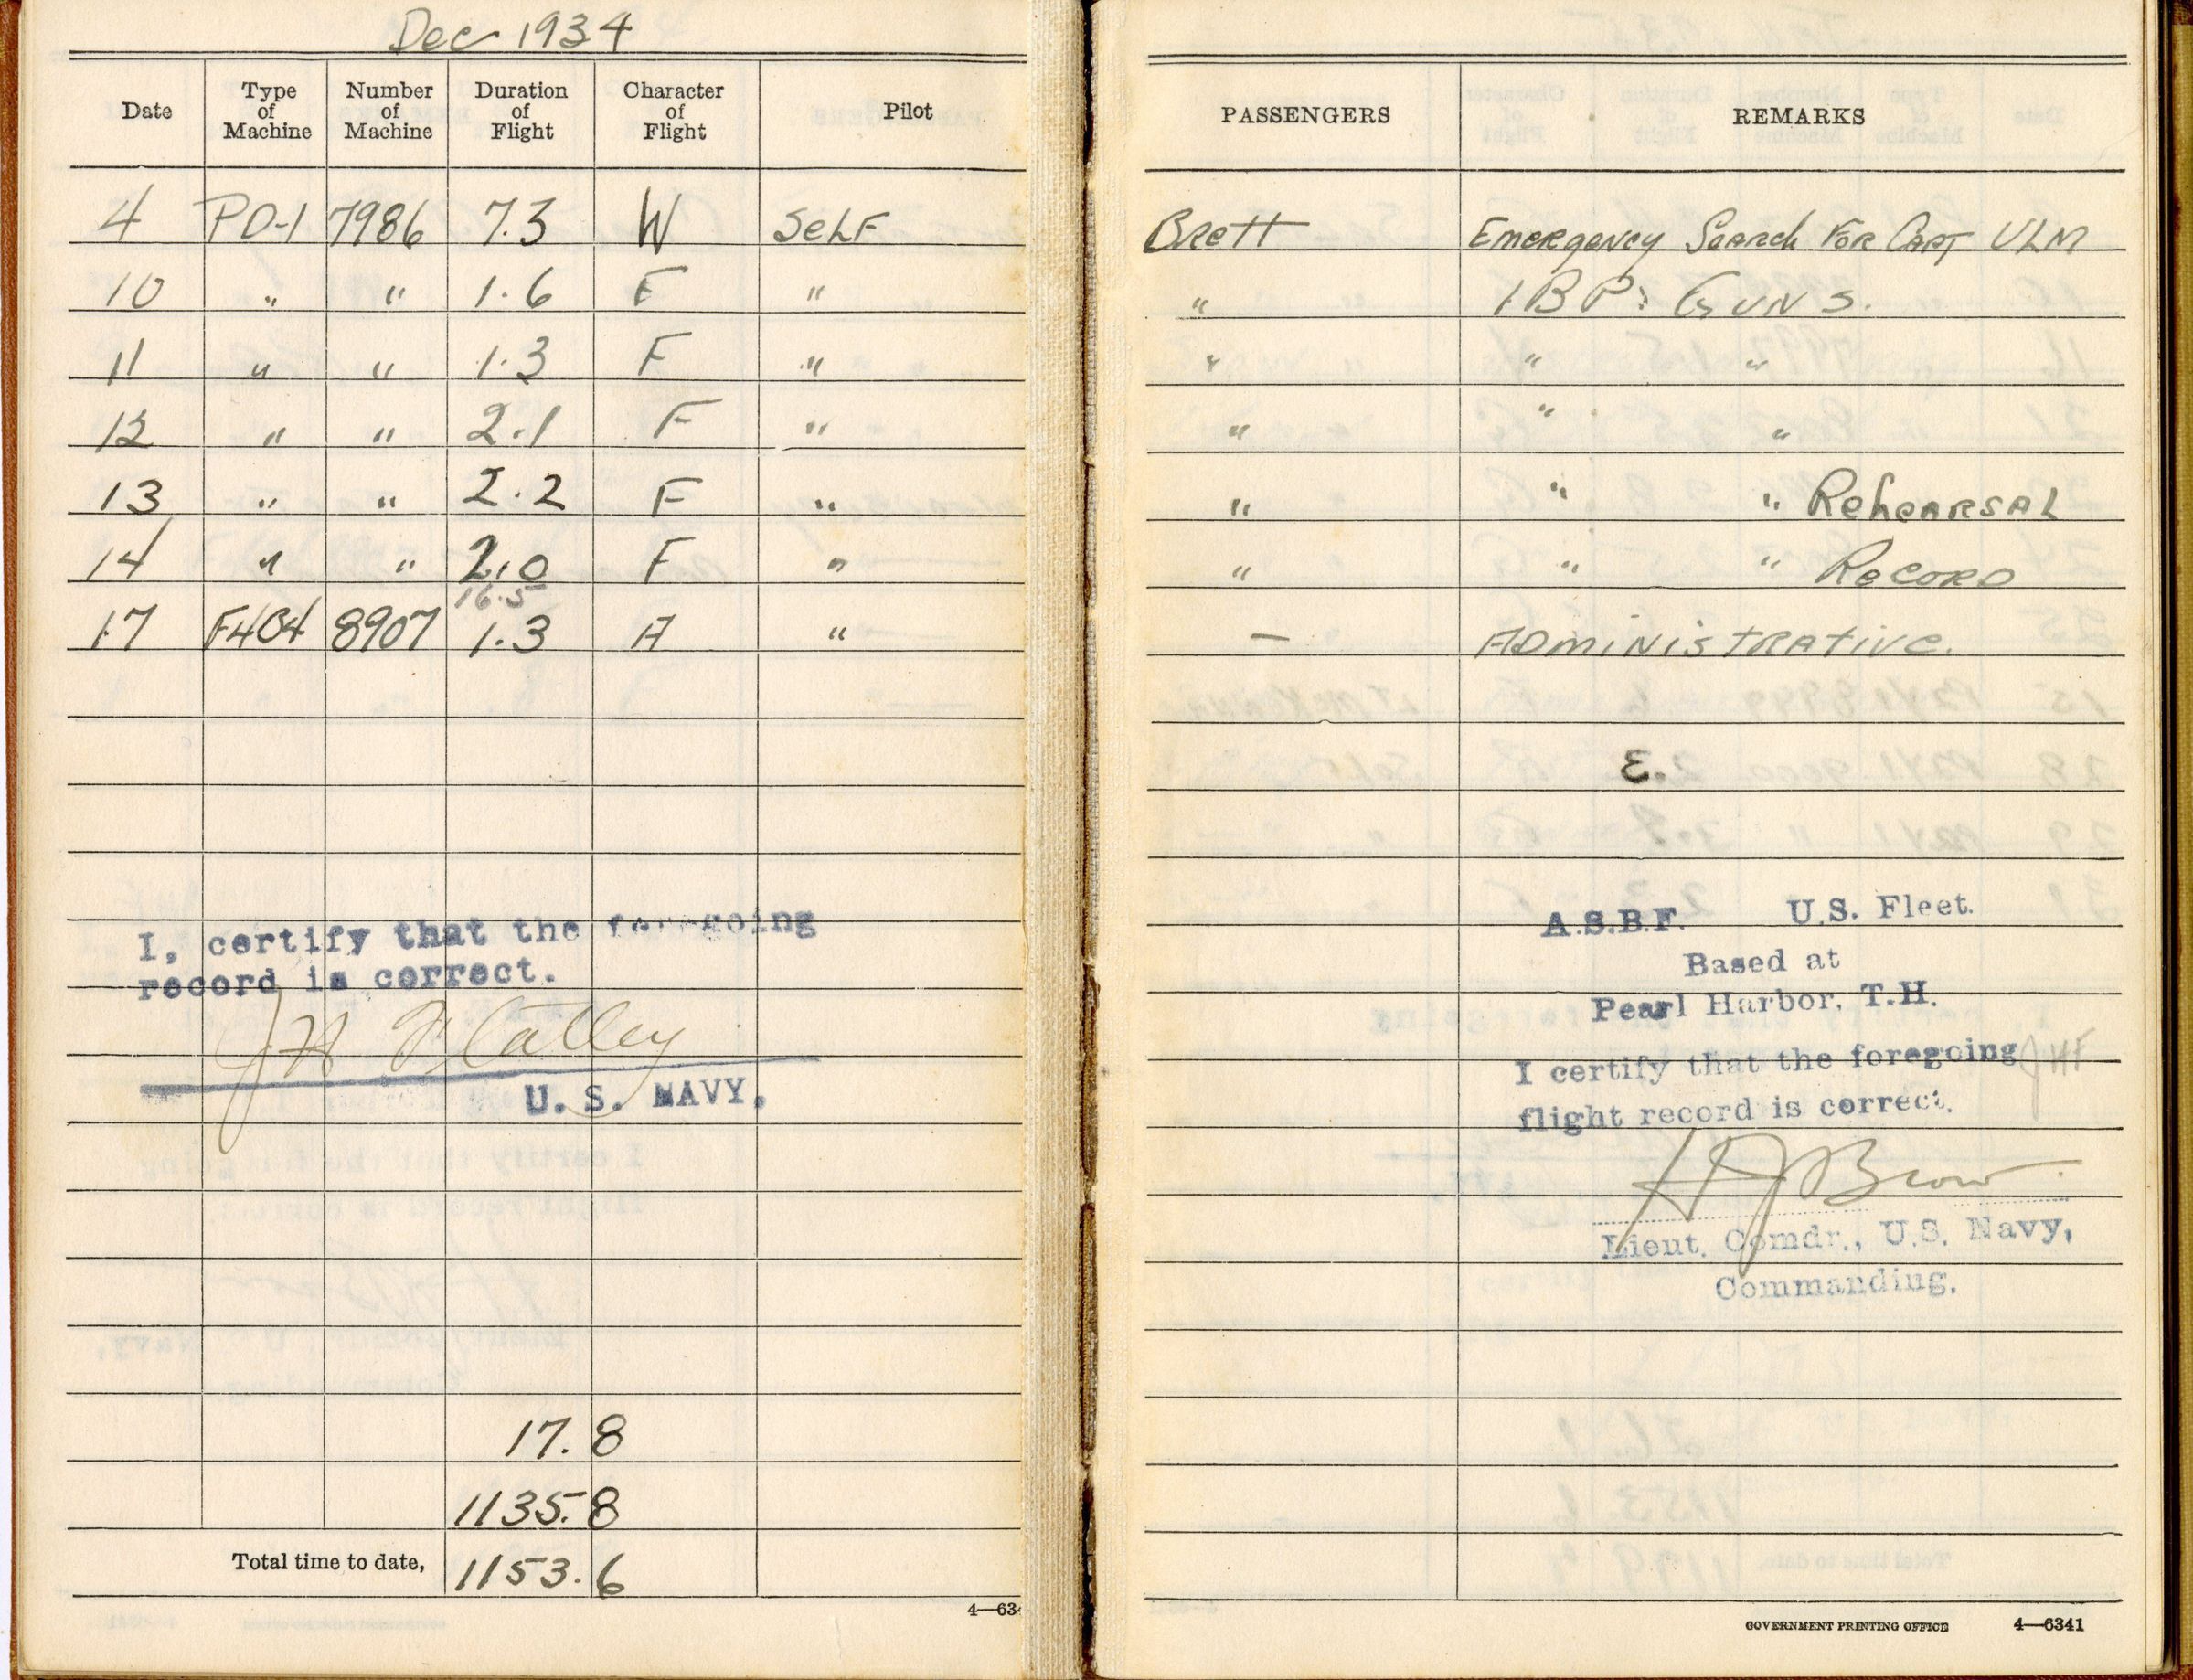 Dec 1934
Date Type of Machine Number of Machine Duration of Flight Character of Flight Pilot
4 PD-1 7986 7.3 W SELF
10 " " 1.6 F "
11 " " 1.3 F "
12 " " 2.1 F "
13 " " 2.2 F "
14 " " 2.0 F "
16.5
17 F4B4 8907 1.3 A "
I, certify that the foregoing
record is correct.
J H Flatley
U. S. NAVY.
17.8
1135.8
Total time to date, 1153.6
4—63
PASSENGERS REMARKS
Brett Emergency Search For Capt ULM
" IBP: GUNS.
" " "
" " "
" " " Rehearsal
" " " Record
— Administrative.
E.
A.S.B.F. U.S. Fleet.
Based at
Pearl Harbor, T.H.
I certify that the foregoing
flight record is correct.
H J Brow
Lieut. Comdr., U.S. Navy,
Commanding.
GOVERNMENT PRINTING OFFICE 4—6341